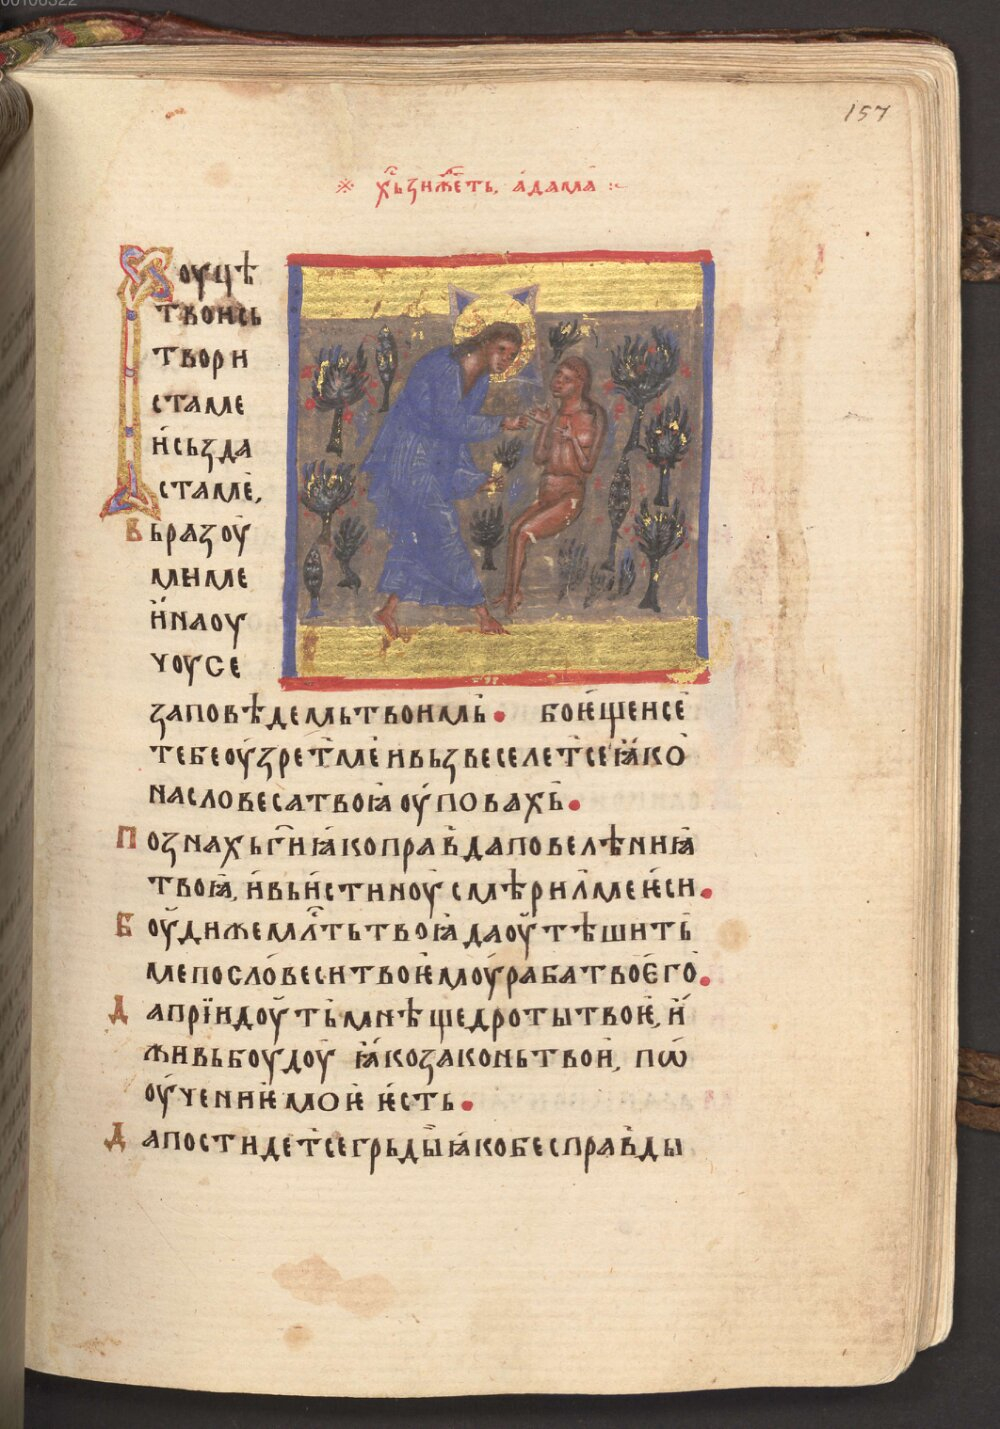 00106322
157
※ х҃ьзиж҃еть. а́дама :~
Роуцѣ
твоисьᲂ
твори
стаме
и҆сьзда
стаме,
вьразоу
миме
и҆наоу
чоусе
заповѣдемьтвоимь• бое҆щеисе
тебеоу҆зретмеивьзвеселетсеꙗ҆ко
насловесатвоꙗоу҆повахь•
Познахьг҃иꙗ҆коправдаповелѣниꙗ
твоꙗ, и҆вьи҆стиноусмѣрилмеѥ҆си•
Боудижемлс҃тьтвоꙗдаоутѣшить
мепословеситвоѥмоурабатвоѐго•
Даприїидоутьмнѣщедротытвоѥ, и҆
живьбоудоу ꙗ҆козаконьтвои, пѡ
оу҆чениѥмоѥ ѥ҆сть•
Дапостидетсегрьдыꙗ҆кобесправды